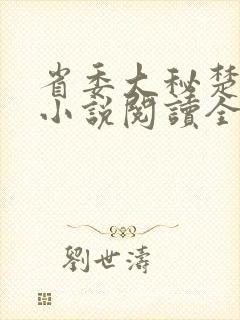 省委大秘楚
小說閱讀全
劉世濤